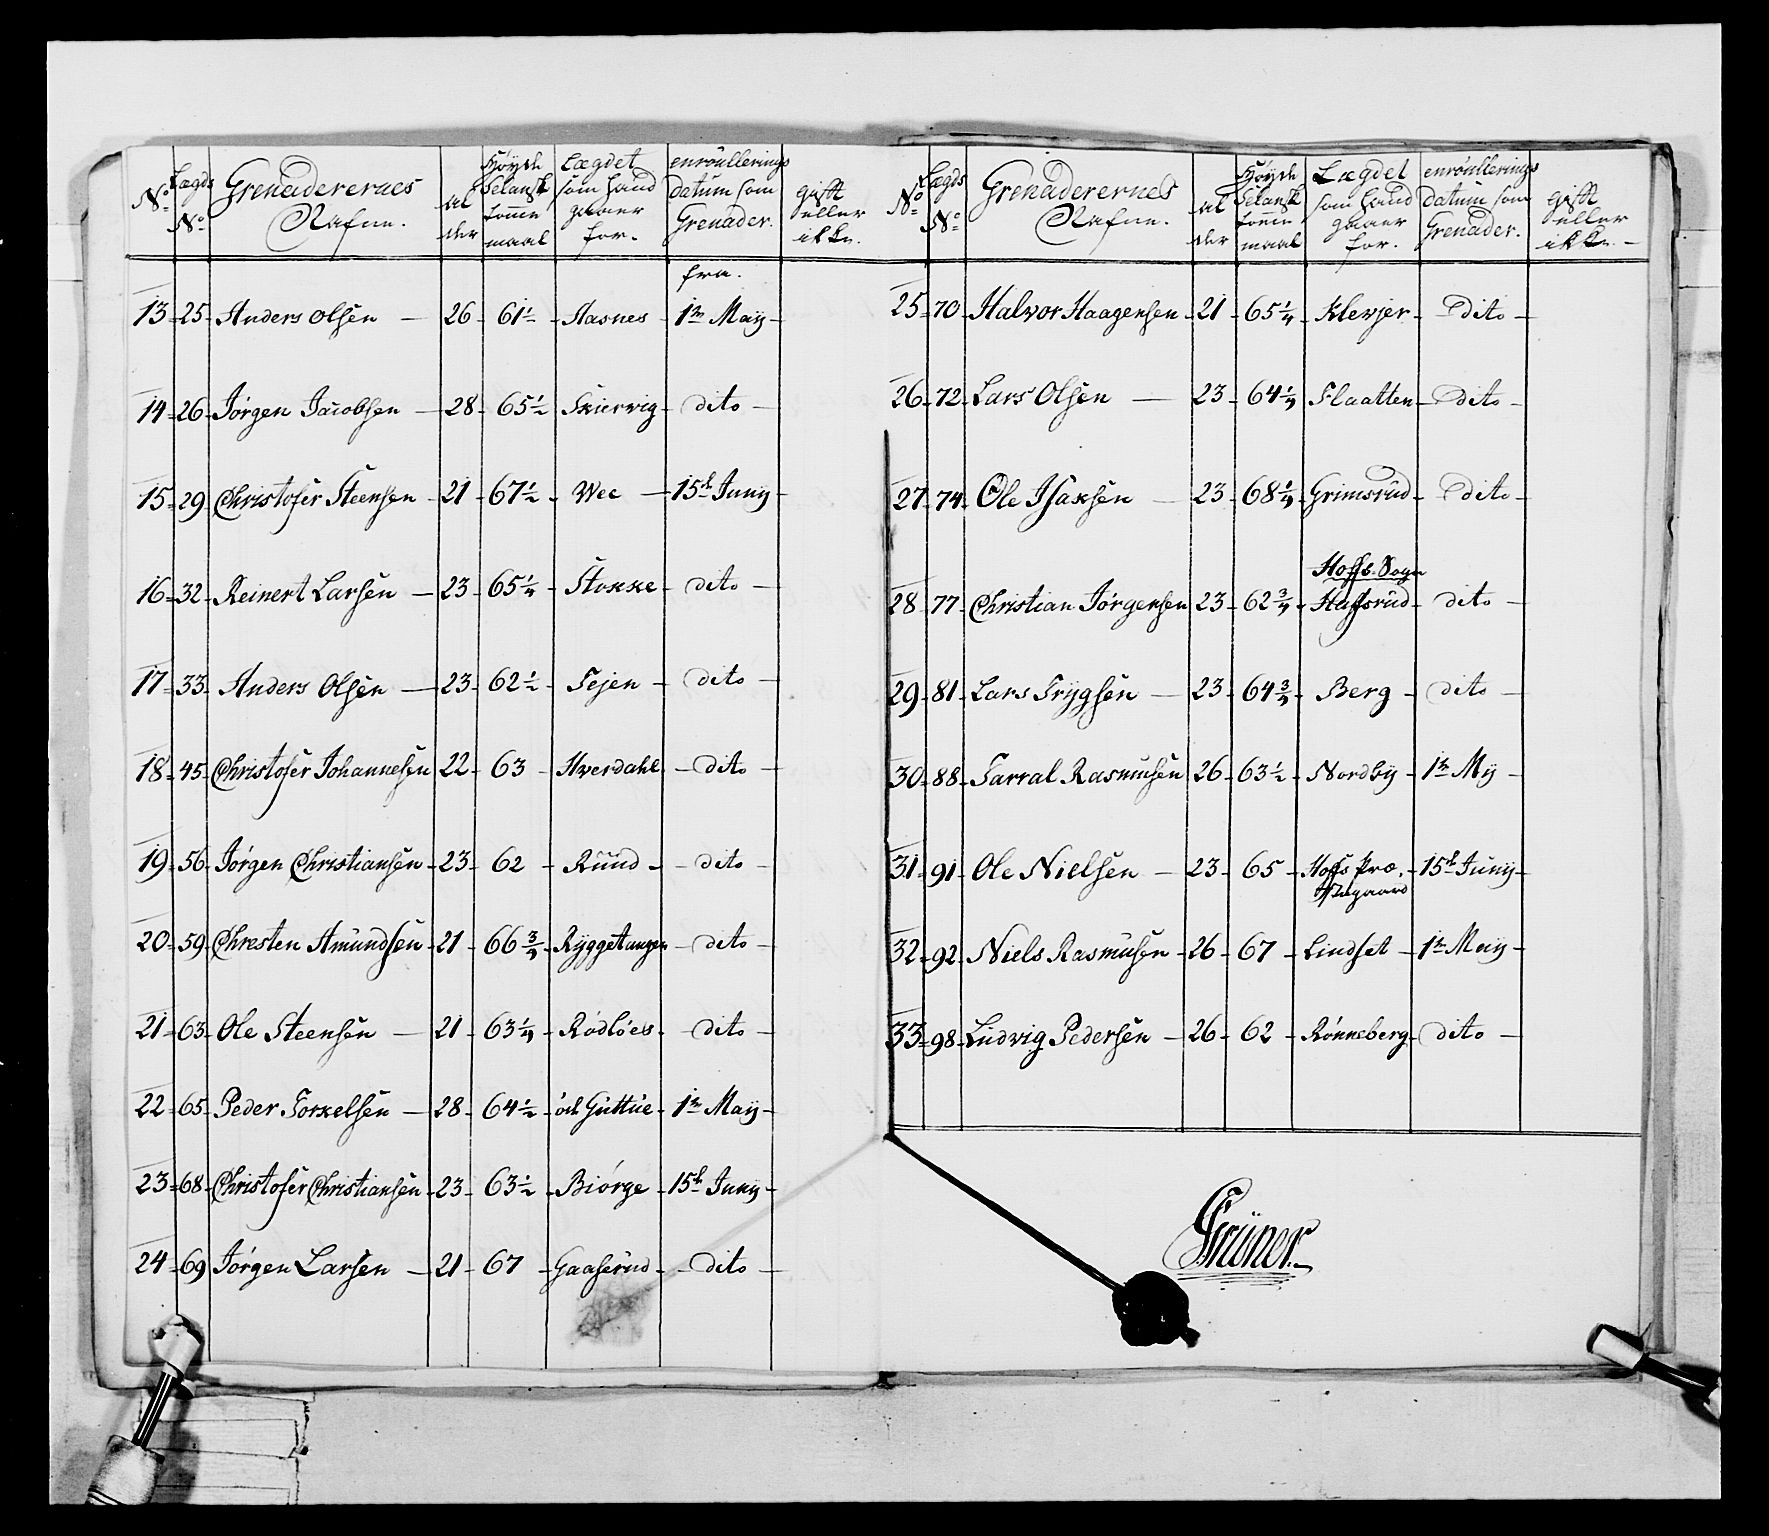 No. Lægds No. Grenaderernes Nafne. Alder Høyde Selansk tomme maal Lægdet som hand gaaer for. enroullerings datum som Grenader. gift eller ikke.
fra.
13 - 25 - Anders Olsen — 26 - 61 1/2 - Aasnes - 1te May -
14 - 26 - Jørgen Jacobsen — 28 - 65 1/2 - Skiervig - dito —
15 - 29 - Christofer Steensen - 21 - 67 1/2 - Wee — 15de Juny -
16 - 32 - Reinert Larsen — 23 - 65 1/4 - Stokke - dito —
17 - 33 - Anders Olsen — 23 - 62 1/2 - Fejen - dito —
18 - 45 - Christofer Johannesen 22 - 63 - Hverdahl - dito —
19 - 56 - Jørgen Christiansen - 23 - 62 - Rund - dito -
20 - 59 - Chresten Amundsen - 21 - 66 3/4 - Ryggetangen - dito -
21 - 63 - Ole Steensen — 21 - 63 1/4 - Rødløes - dito —
22 - 65 - Peder Torkelsen — 28 - 64 1/2 - Guttue - 1te May -
23 - 68 - Christofer Christiansen - 23 - 63 1/2 - Biørge - 15de Juny -
24 - 69 Jørgen Larsen — 21 - 67 - Gaaserud - dito —
No. Lægds No. Grenaderernes Nafne. Alder Høyde Selansk tomme maal Lægdet som hand gaaer for. enroullerings datum som Grenader. gift eller ikke. —
25 - 70 - Halvor Haagensen - 21 - 65 1/4 - Klevjer - Dito —
26 - 72 - Lars Olsen — 23 - 64 1/4 - Flaatten - dito -
27 - 74 - Ole Isaksen — 23 - 68 1/4 - Grimsrud - dito -
Hoffs Sogn
28 - 77 - Christian Jørgensen 23 - 62 3/4 - Haffsrud - dito —
29 - 81 - Lars Trygsen — 23 - 64 3/4 - Berg - dito —
30 - 88 - Tarral Rasmusen 26 - 63 1/2 - Nordby - 1te My -
31 - 91 - Ole Nielsen — 23 - 65 - Hoffs Præ - 15de Juny -
stegaard
32 - 92 - Niels Rasmusen - 26 - 67 - Lindset - 1te May -
33 - 98 - Ludvig Pedersen — 26 - 62 - Rønneberg - dito —
Grüner.